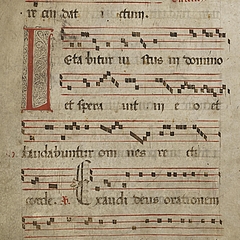 Letabitur iustus in domino
et sperabit in eo et
laudabuntur omnes recti
corde. Exaudi deus orationem